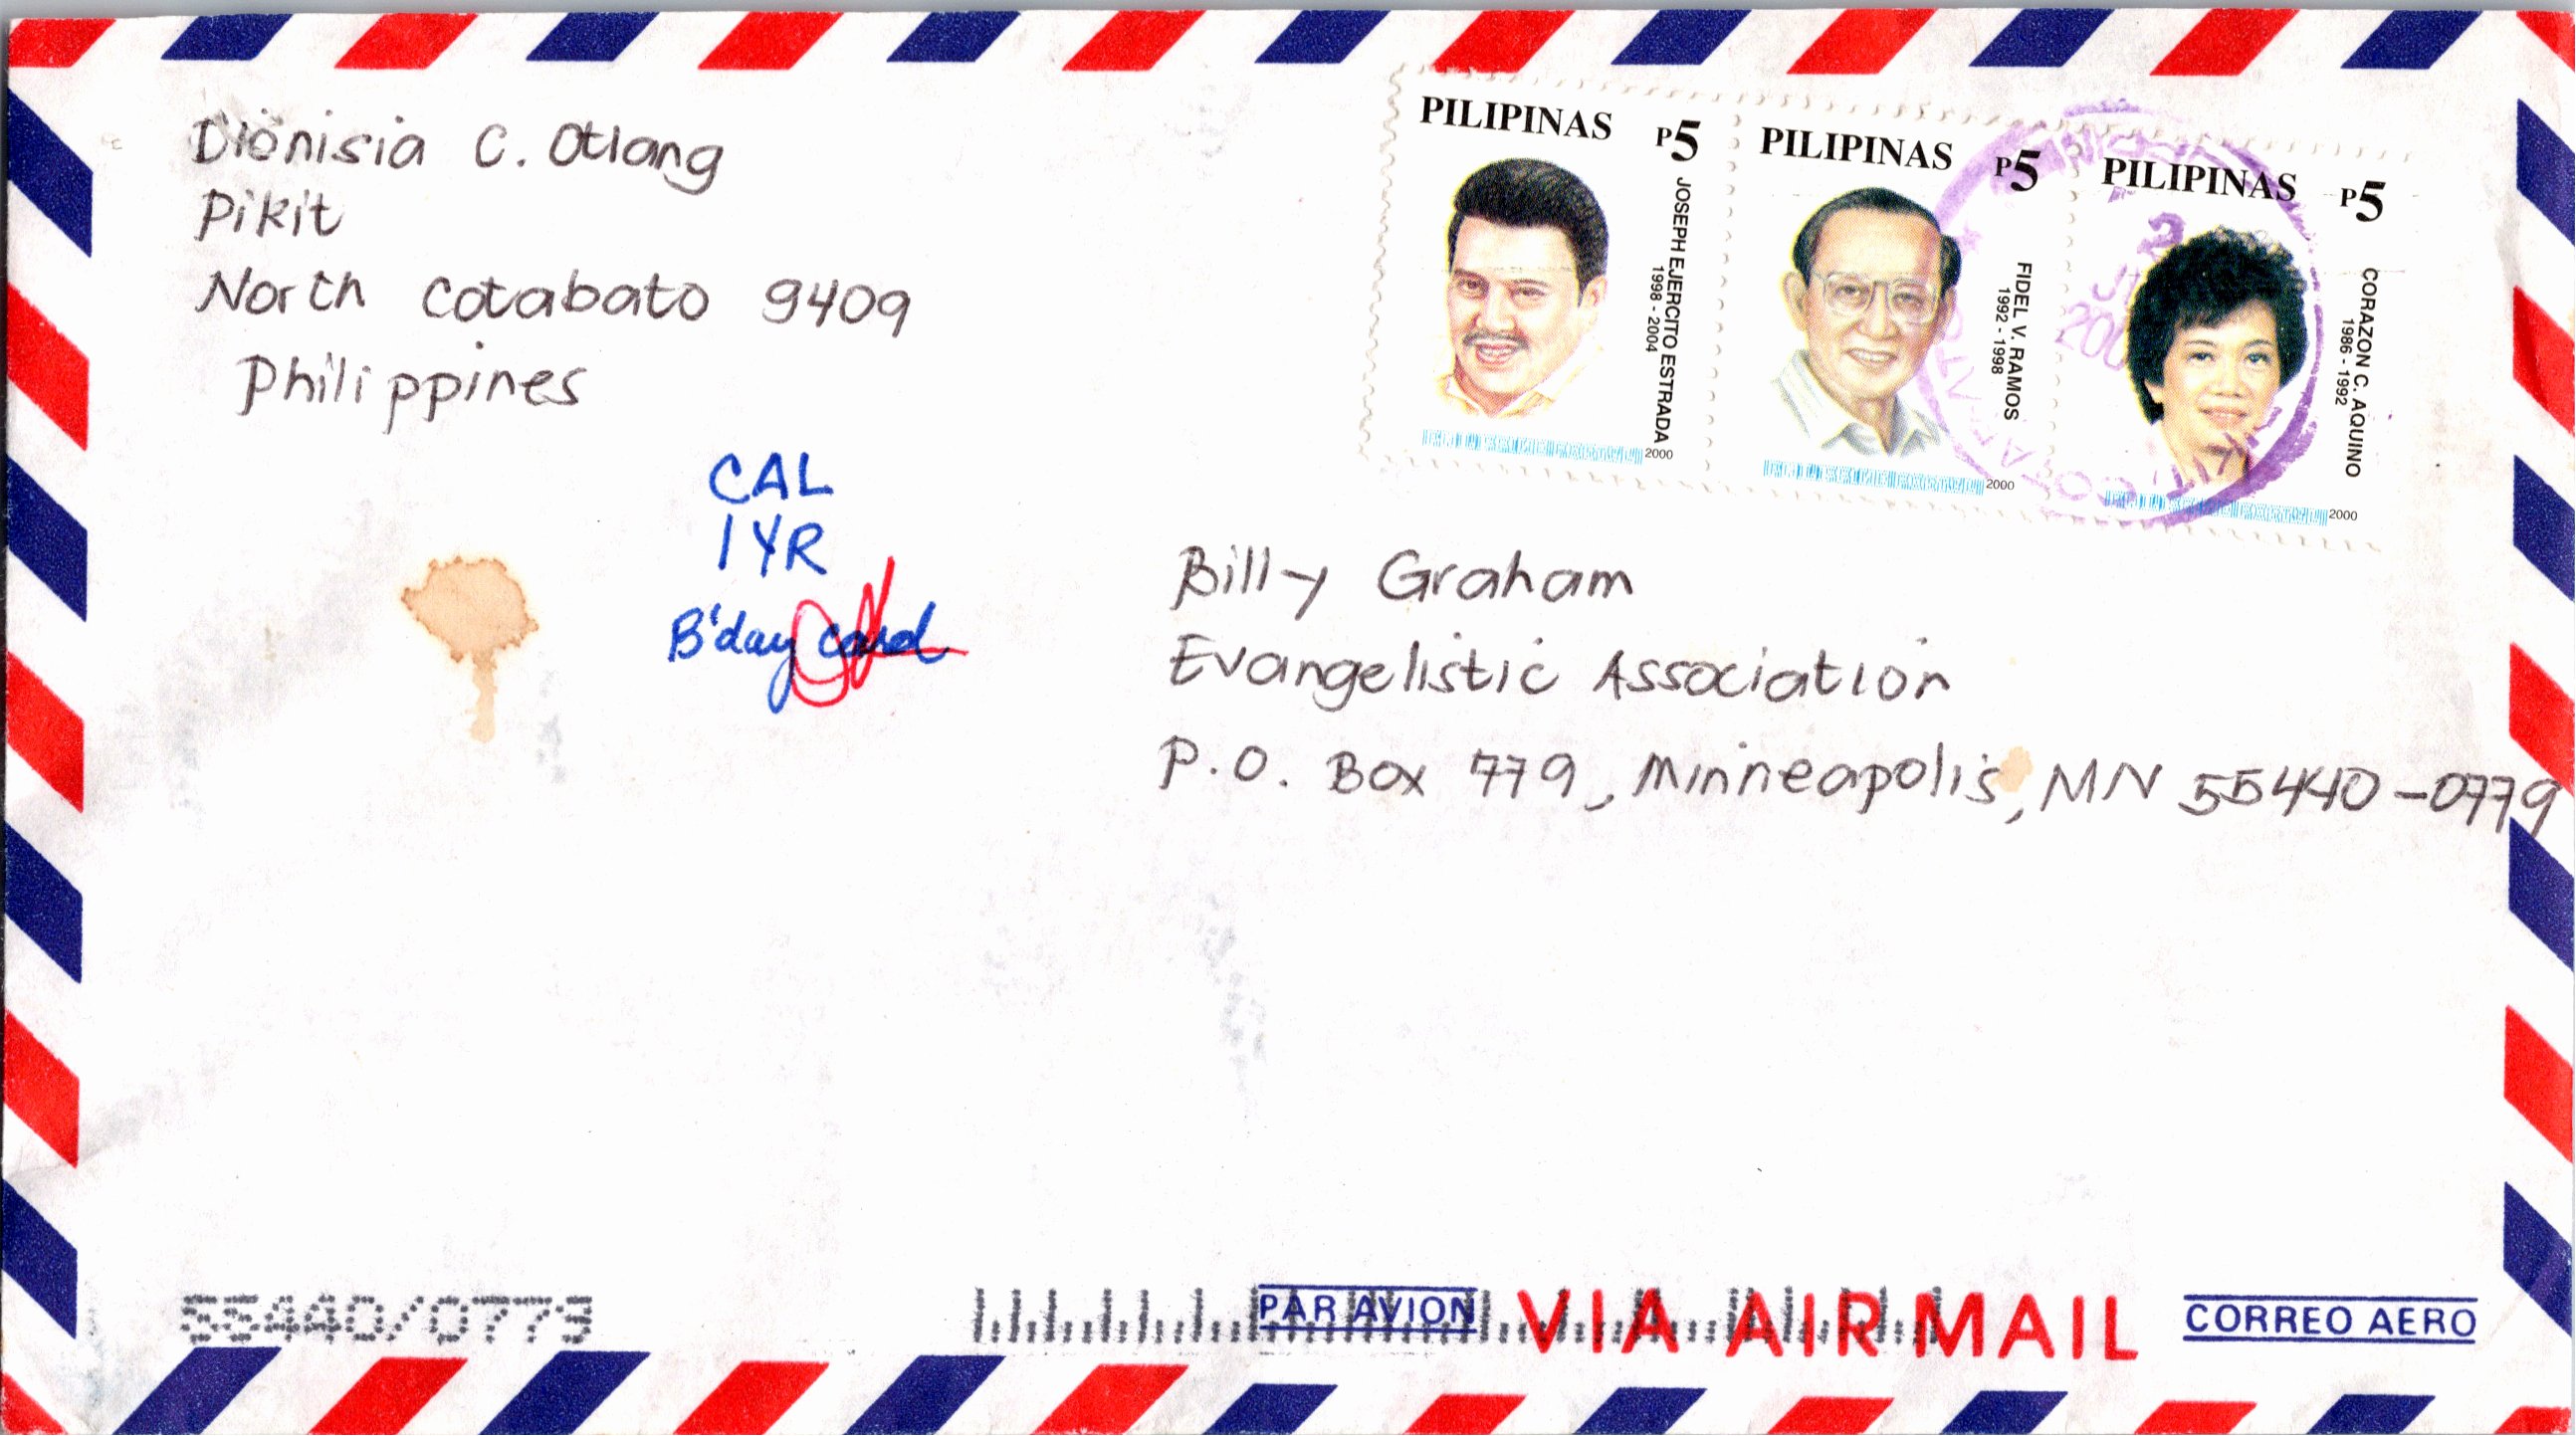 Dionisia C. Otlang
Pikit
North Cotabato 9409
Philippines
PILIPINAS P5
JOSEPH EJERCITO ESTRADA
1998 - 2004
2000
PILIPINAS P5
FIDEL V. RAMOS
1992 - 1998
2000
PILIPINAS P5
CORAZON C. AQUINO
1986 - 1992
2000
CAL
1 YR
B'day card
Billy Graham
Evangelistic Association
P.O. Box 779, Minneapolis, MN 55440-0779
55440/0779
PAR AVION VIA AIR MAIL CORREO AERO